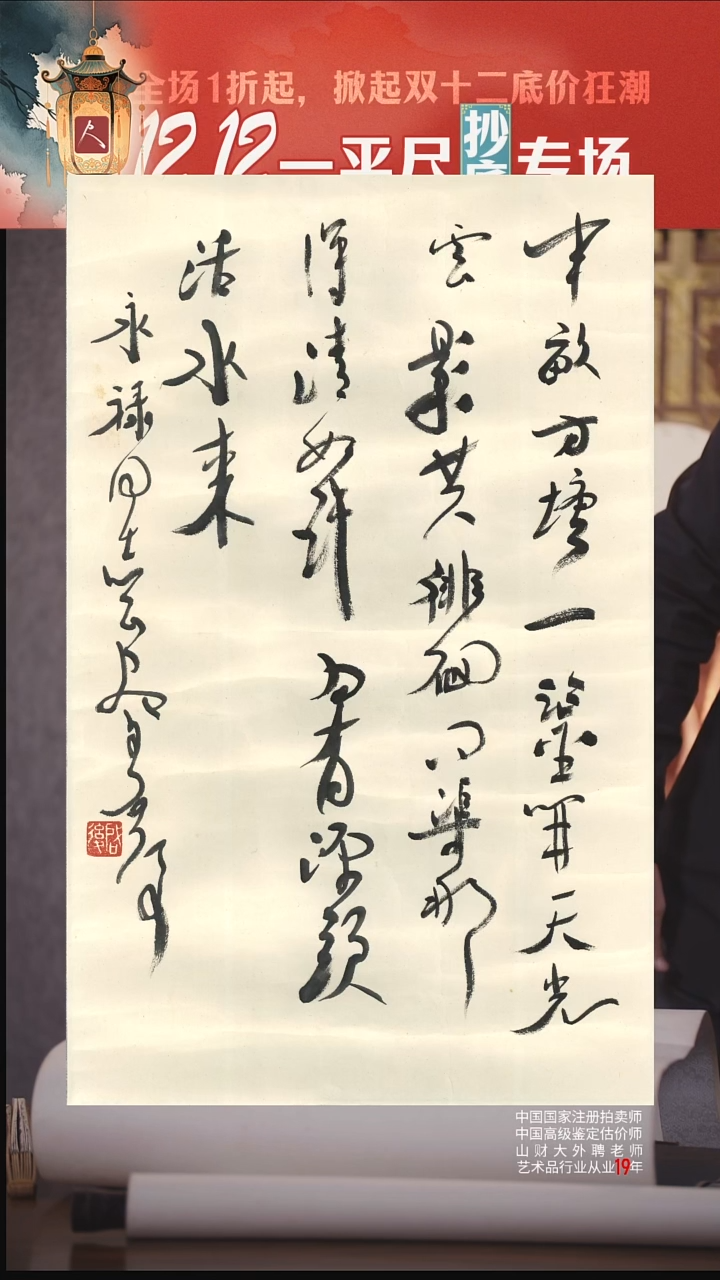 全场1折起，掀起双十二底价狂潮
12.12一平尺抄底专场
尺
半畝方塘一鑒開天光
雲影共徘徊問渠那
得清如許為有源頭
活水来
永禄同志
中国国家注册拍卖师
中国高级鉴定估价师
山财大外聘老师
艺术品行业从业19年